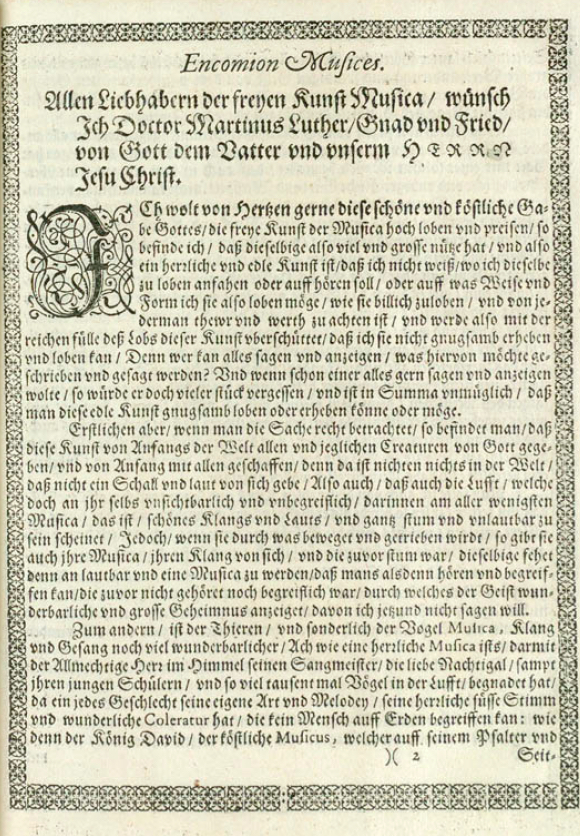 Encomion Musices.
Allen Liebhabern der freyen Kunst Musica / wünsch
Ich Doctor Martinus Luther / Gnad vnd Fried /
von Gott dem Vatter vnd vnserm HERRN
Jesu Christ.
ICh wolt von Hertzen gerne diese schöne vnd köstliche Ga-
be Gottes / die freye Kunst der Musica hoch loben vnd preisen / so
befinde ich / daß dieselbige also viel vnd grosse nütze hat / vnd also
ein herrliche vnd edle Kunst ist / daß ich nicht weiß / wo ich dieselbe
zu loben anfahen oder auff hören soll / oder auff was Weise vnd
Form ich sie also loben möge / wie sie billich zuloben / vnd von je-
derman thewr vnd werth zu achten ist / vnd werde also mit der
reichen fülle deß Lobs dieser Kunst vberschüttet / daß ich sie nicht gnugsamb erheben
vnd loben kan / Denn wer kan alles sagen vnd anzeigen / was hiervon möchte ge-
schrieben vnd gesagt werden? Vnd wenn schon einer alles gern sagen vnd anzeigen
wolte / so würde er doch vieler stück vergessen / vnd ist in Summa vnmüglich / daß
man diese edle Kunst gnugsamb loben oder erheben könne oder möge.
Erstlichen aber / wenn man die Sache recht betrachtet / so befindet man / daß
diese Kunst von Anfangs der Welt allen vnd jeglichen Creaturen von Gott gege-
ben / vnd von Anfang mit allen geschaffen / denn da ist nichten nichts in der Welt /
daß nicht ein Schall vnd laut von sich gebe / Also auch / daß auch die Lufft / welche
doch an jhr selbs vnsichtbarlich vnd vnbegreiflich / darinnen am aller wenigsten
Musica / das ist / schönes Klangs vnd Lauts / vnd gantz stum vnd vnlautbar zu
sein scheinet / Jedoch / wenn sie durch was beweget vnd getrieben wirdt / so gibt sie
auch jhre Musica / jhren Klang von sich / vnd die zuvor stum war / dieselbige fehet
denn an lautbar vnd eine Musica zu werden / daß mans alsdenn hören vnd begreif-
fen kan / die zuvor nicht gehöret noch begreiflich war / durch welches der Geist wun-
derbarliche vnd grosse Geheimnus anzeiget / davon ich jetzund nicht sagen will.
Zum andern / ist der Thieren / vnd sonderlich der Vogel Musica, Klang
vnd Gesang noch viel wunderbarlicher / Ach wie eine herrliche Musica ists / darmit
der Allmechtige Herr im Himmel seinen Sangmeister / die liebe Nachtigal / sampt
jhren jungen Schülern / vnd so viel tausent mal Vögel in der Lufft / begnadet hat /
da ein jedes Geschlecht seine eigene Art vnd Melodey / seine herrliche süsse Stimm
vnd wunderliche Coleratur hat / die kein Mensch auff Erden begreiffen kan : wie
denn der König David / der köstliche Musicus, welcher auff seinem Psalter vnd
)( 2 Seit-